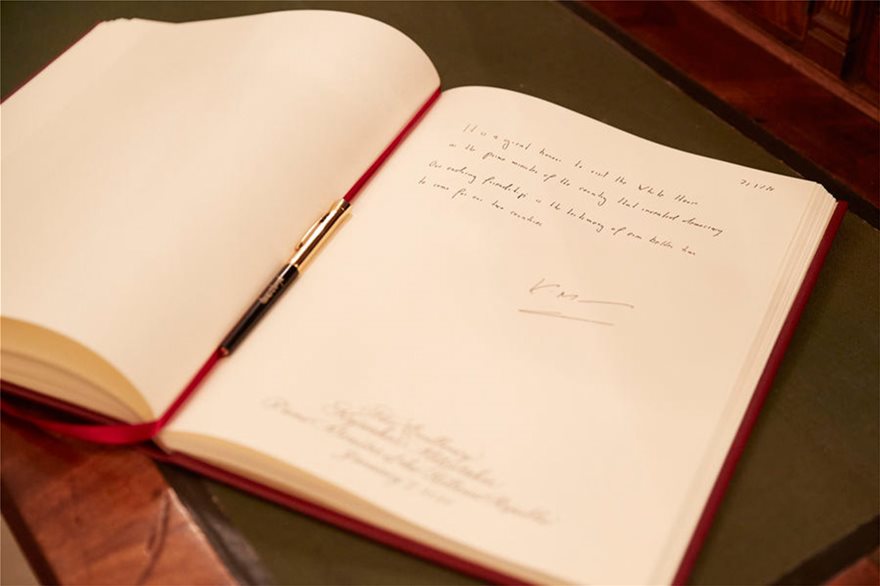 7/1/20
It is a great honor to visit the White House
as the prime minister of the country that invented democracy
Our enduring friendship is the testimony of even better times
to come for our two countries
K. M
His Excellency
Kyriakos Mitsotakis
Prime Minister of the Hellenic Republic
January 7, 2020